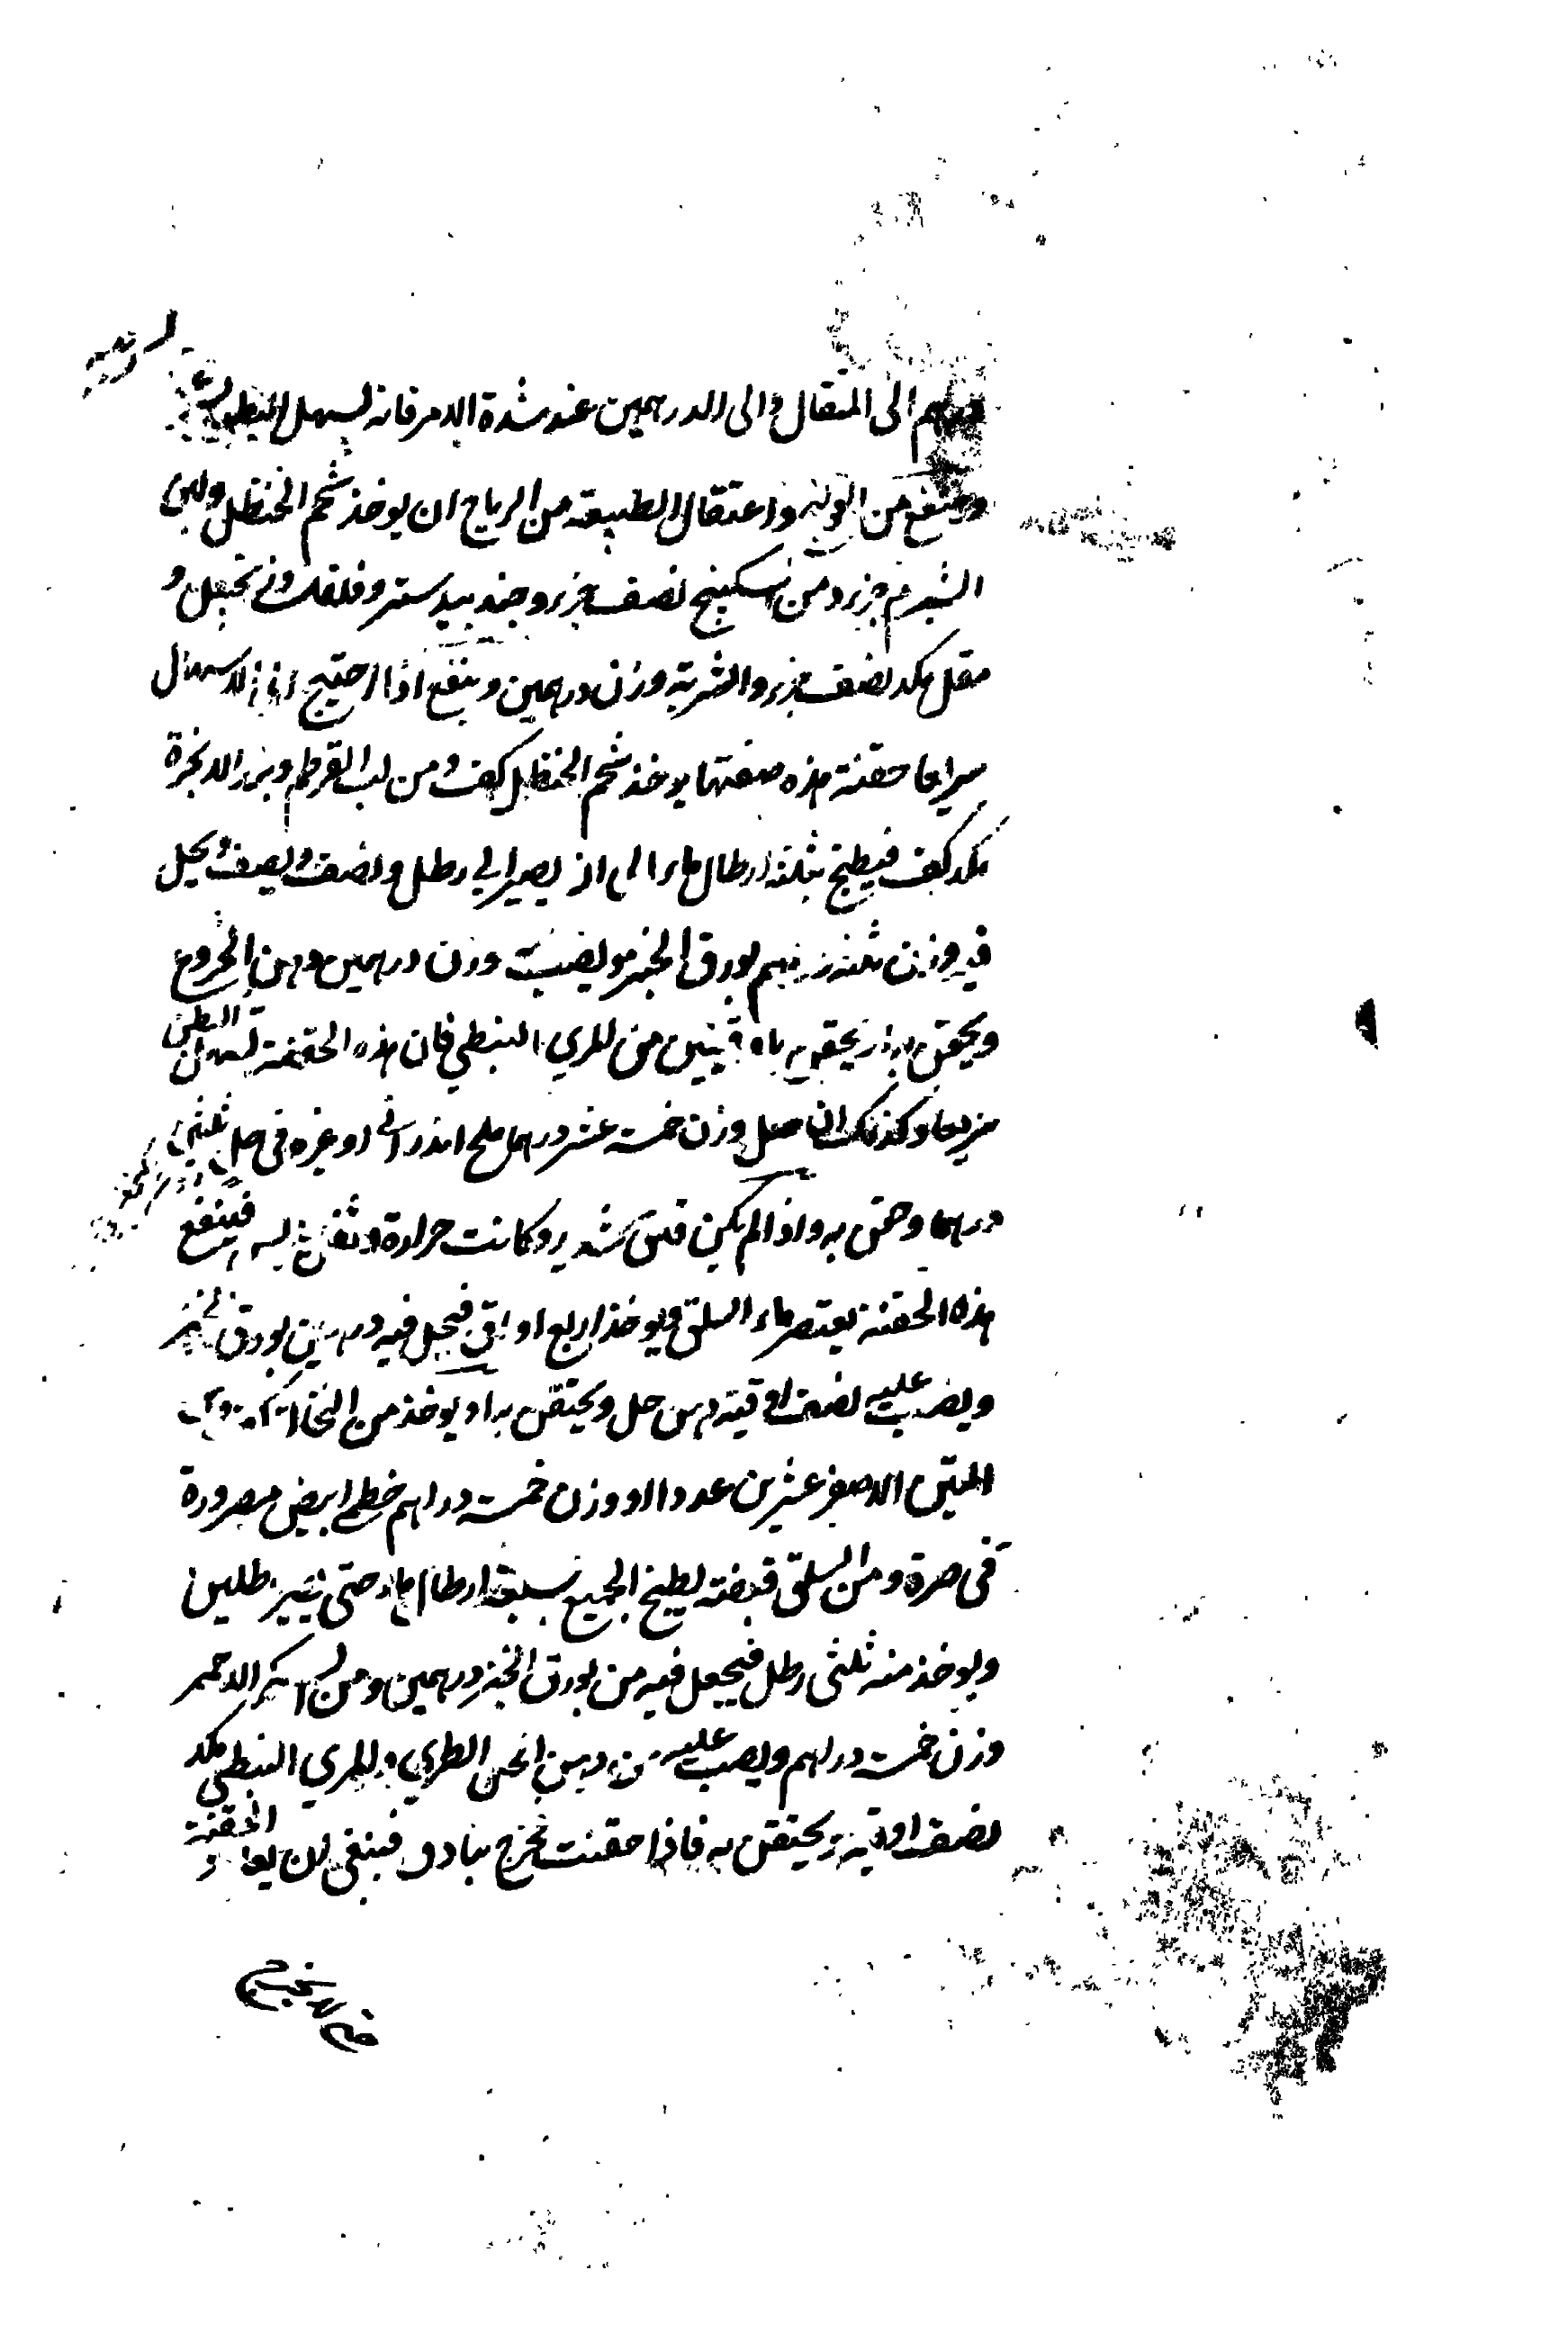 درهم الى المثقال والى الدرهمين عند شدة الامر فانه يسهل البطن
وينفع من القولنج واعتقال الطبيعة من الرياح ان يوخذ شحم الحنظل ولبن
الشبرم جزء ومن السكبينج نصف جزء وجندبيدستر وفلفل وزنجبيل و
مقل مكد نصف جزء والشربة وزن درهمين وينفع اذا احتيج الى الاسهال
سريعا حقنة هذه صفتها يوخذ شحم الحنظل كف ومن لب القرطم وبزر الانجرة
مكد كف فيطبخ بثلثة ارطال ماء الى ان يصير الى رطل ونصف ويصفى ويحل
فيه وزن ثلثة دراهم بورق الخبز ويضب وزن درهمين دهن الخروع
ويحقن به او يحقن باوقيتين من المري النبطي فان هذه الحقنة تسهل البطن
سريعا وكذلك ان حل وزن خمسة عشر درهما ملح اندراني او غيره في ثلثين
درهما وحقن به واذا لم يكن قئ شديد وكانت حرارة فينفع
هذه الحقنة يعتصر ماء السلق ويوخذ اربع اواق فيحل فيه درهمين بورق الخبز
ويصب عليه نصف اوقية دهن حل ويحتقن به او يوخذ من النخالة
التين الاصفر عشرين عددا او وزن خمسة دراهم خطمي ابيض مصرورة
في صرة ومن السلق قبضة يطبخ الجميع بسبعة ارطال ماء حتى يصير رطلين
ويوخذ منه ثلثى رطل فيجعل فيه من بورق الخبز درهمين ومن السكر الاحمر
وزن خمسة دراهم ويصب عليه من دهن الحل الطري والمري النبطي مكد
نصف اوقية ويحتقن به فاذا حقنت تخرج بنادق فينبغى ان يعاود الحقنة